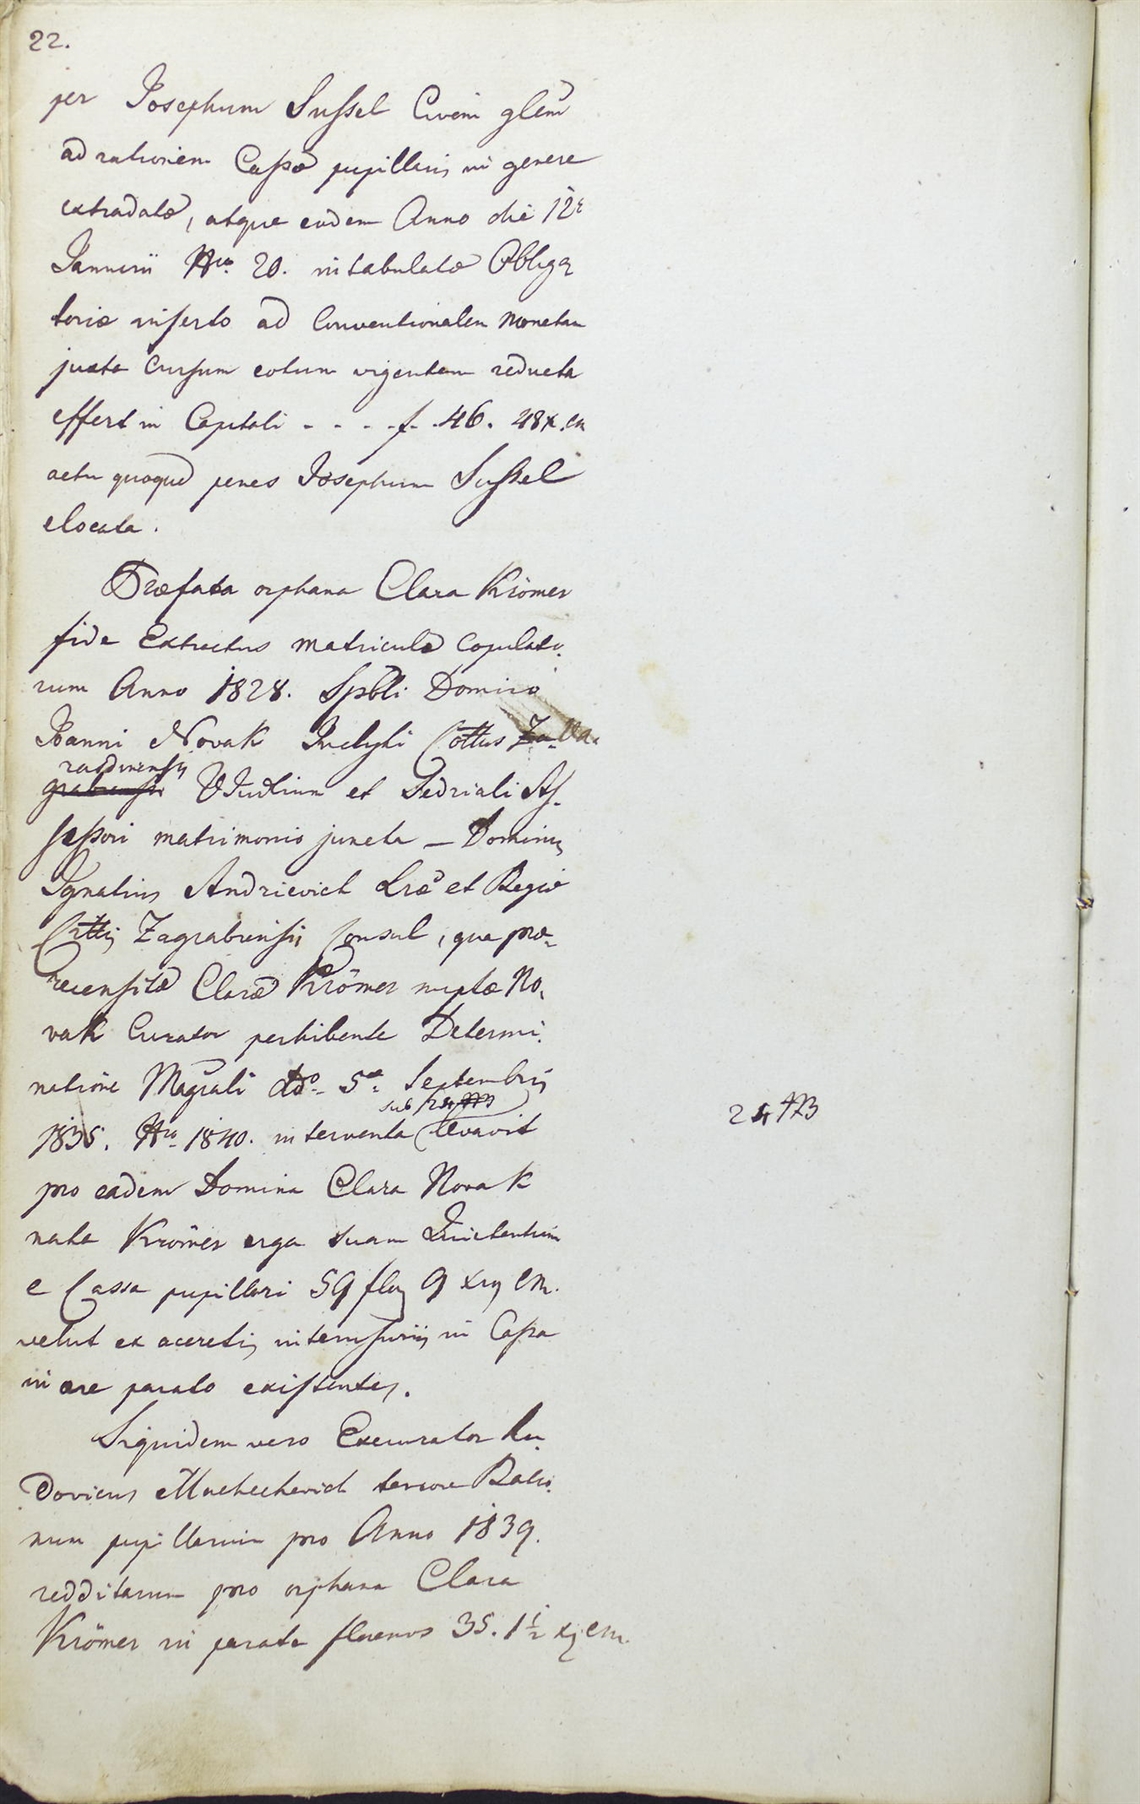 22.
per Josephum Sussel Civem glem̄
ad rationem Cassæ pupillaris in genere
extradatæ, atque eodem Anno die 12ª
Januarii Nro. 20. intabulatæ Obliga
toriæ inserto ad Conventionalem Monetam
juxta Cursum eotum vigentem reducta
effert in Capitali - - - - f. 46. 48x. cm
actu quoque penes Josephum Sussel
elocata.
Præfata orphana Clara Krömer
fide Extractus matriculæ Copulato.
rum Anno 1828. Spbli Domino
Joanni Novak Inclyti Cottus Za- Va.
rasdinensis
grabiensis VJudlium et Sedriali As-
sessori matrimonio juncta — Dominus
Ignatius Andrievich Lræ et Regiæ
Cittis Zagrabiensis Consul, qua præ-
recensitæ Claræ Krömer nuptæ No.
vak Curator perhibente Determi.
natione Magrali ddo. 5ª Septembris
sub 24/423
1835. Nro 1840. interventa levavit
24 423
pro eadem Domina Clara Novak
nata Krömer erga suam Quietantiam
e Cassa pupillari 59 flos 9 xros cm.
velut ex accretis interusuriis in Cassa
in ære parato existentes.
Siquidem vero Excurator Lu.
dovicus Machechevich tenore Ratio.
num pupillarium pro Anno 1839.
redditarum pro orphana Clara
Krömer in parato florenos 35. 1 1/2 xs cm.